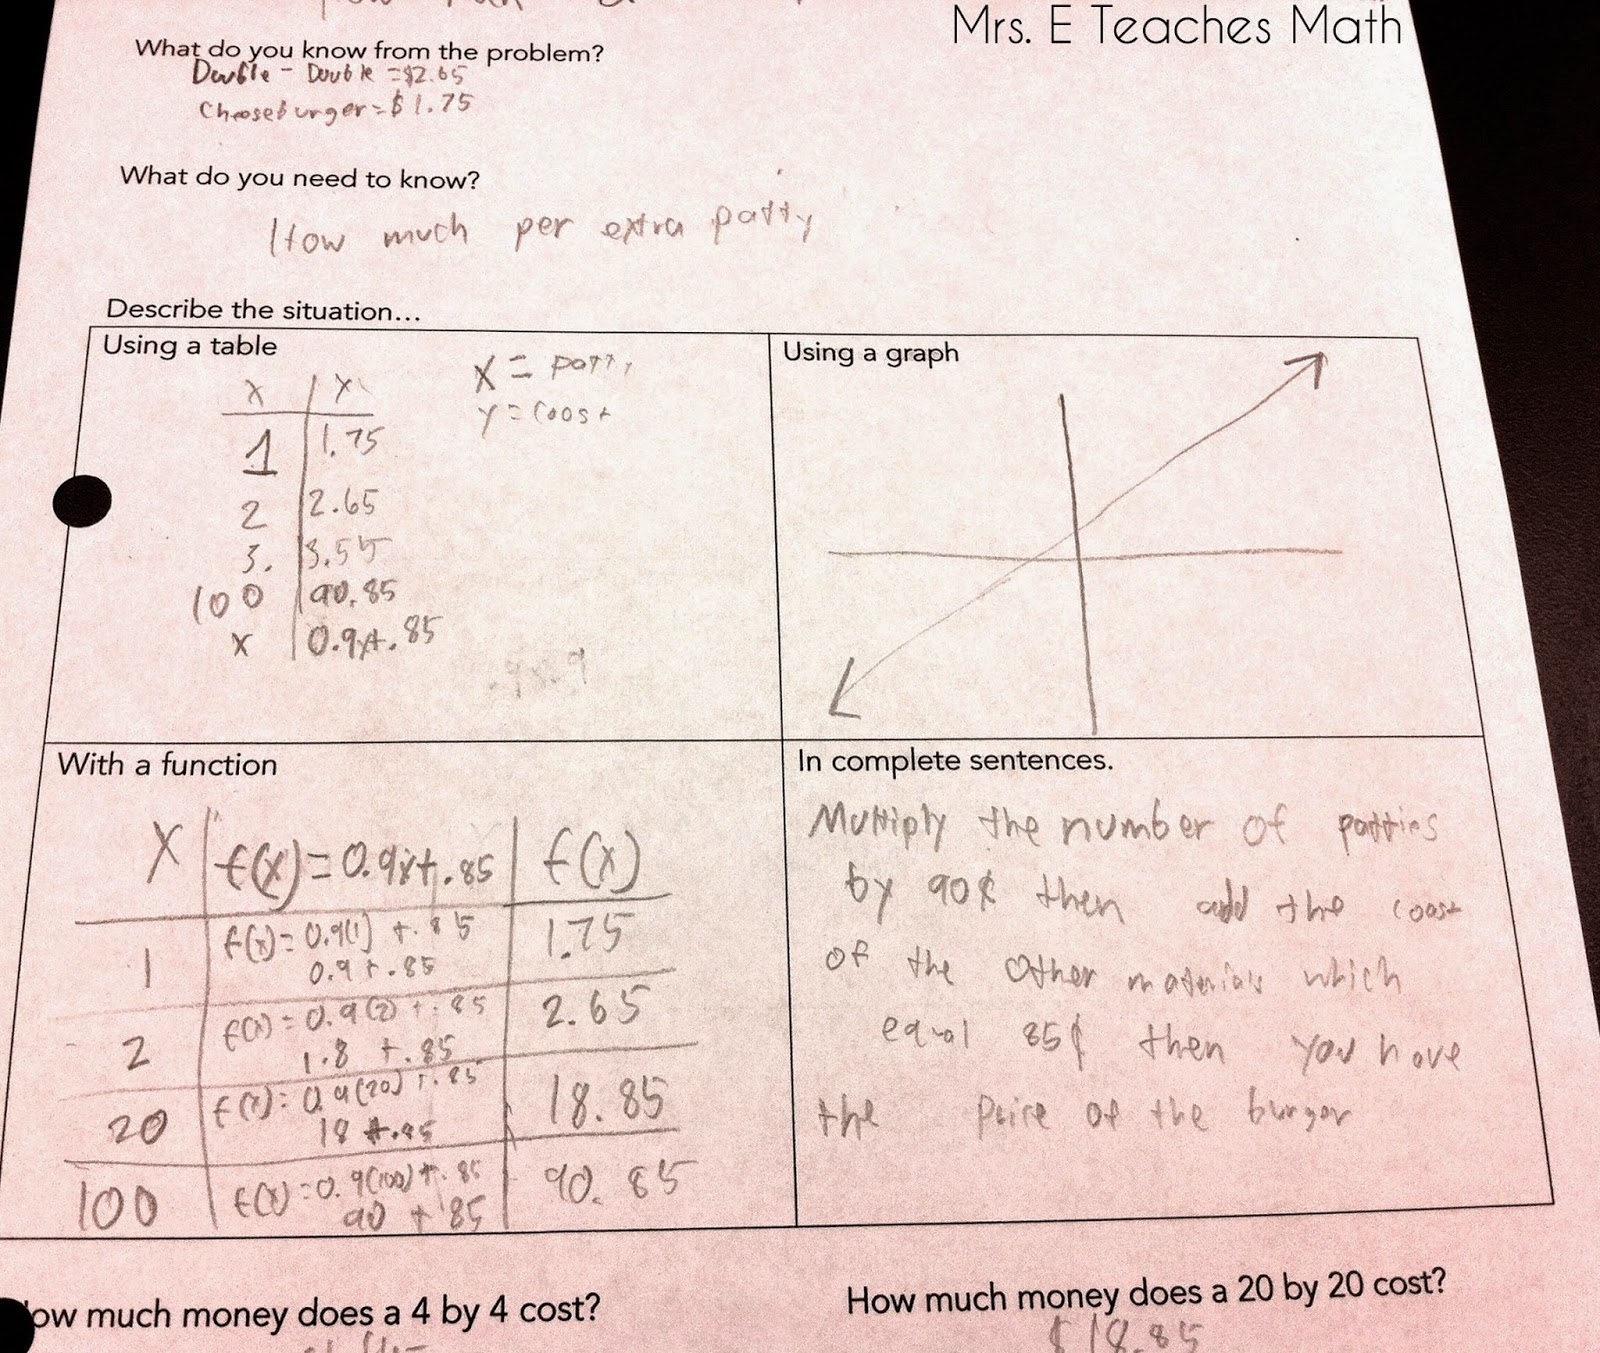 Mrs. E Teaches Math
What do you know from the problem?
Double - Double = $2.65
Cheeseburger = $1.75
What do you need to know?
How much per extra patty
Describe the situation...
Using a table
x
1 1.75
2 2.65
3. 3.55
100 90.85
x 0.9x+.85
x = patty
y = coost
Using a graph
With a function
x f(x)=0.9x+.85 f(x)
1 f(x)=0.9(1)+.85 1.75
0.9+.85
2 f(x)=0.9(2)+.85 2.65
1.8 +.85
20 f(x)=0.9(20)+.85 18.85
18 +.85
100 f(x)=0.9(100)+.85 90.85
90 +.85
In complete sentences.
Multiply the number of patties
by 90¢ then add the coost
of the other materials which
equal 85¢ then you have
the price of the burger
ow much money does a 4 by 4 cost?
How much money does a 20 by 20 cost?
$18.85